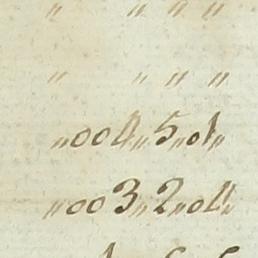 " " " "
" " " "
"004"5"01"
"003"2"04"